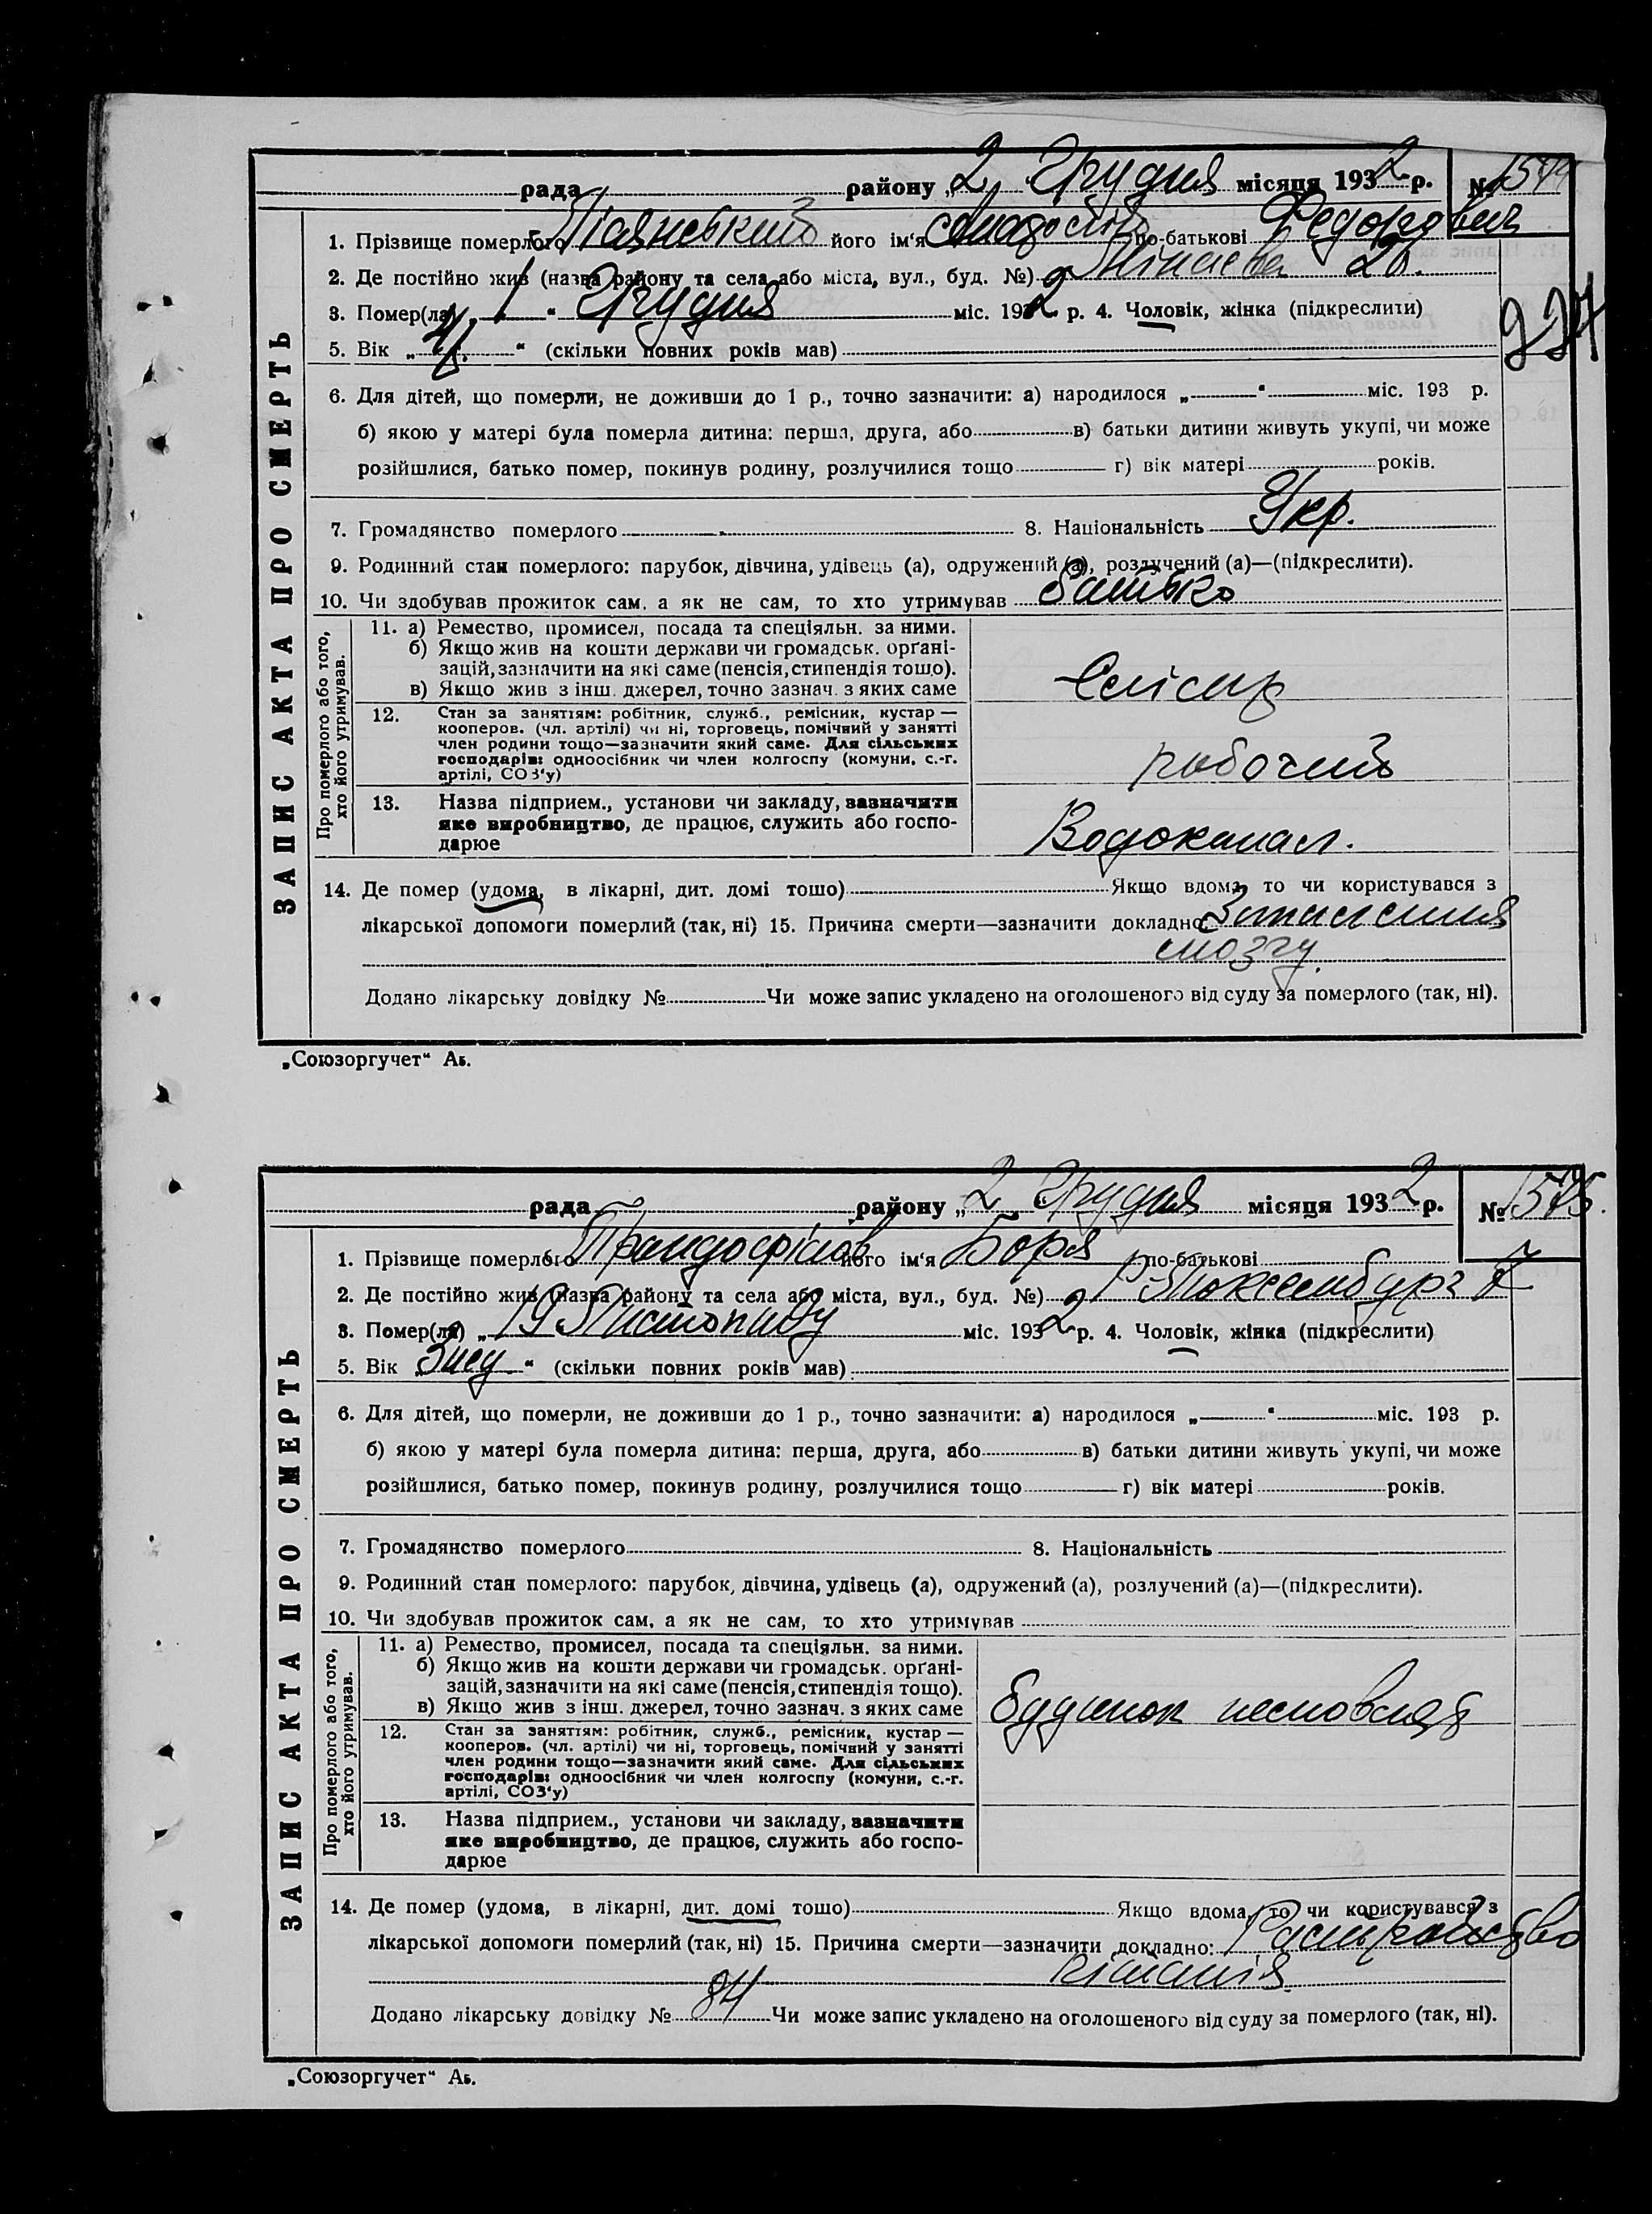 рада району „2„ Грудня місяця 1932 р. № 1574
1. Прізвище померлого його ім'я по-батькові Федорович
2. Де постійно жив (назва району та села або міста, вул., буд. №)
3. Помер(ла) „ 1 “ Грудня міс. 1932 р. 4. Чоловік, жінка (підкреслити)
5. Вік „ “ (скільки повних років мав)
6. Для дітей, що померли, не доживши до 1 р., точно зазначити: а) народилося „ “ міс. 193 р.
б) якою у матері була померла дитина: перша, друга, або в) батьки дитини живуть укупі, чи може
розійшлися, батько помер, покинув родину, розлучилися тощо г) вік матері років.
7. Громадянство померлого 8. Національність Укр.
9. Родинний стан померлого: парубок, дівчина, удівець (а), одружений (а), розлучений (а)—(підкреслити).
10. Чи здобував прожиток сам, а як не сам, то хто утримував батько
ЗАПИС АКТА ПРО СМЕРТЬ
Про померлого або того,
хто його утримував.
11. а) Ремество, промисел, посада та спеціяльн. за ними.
б) Якщо жив на кошти держави чи громадськ. орґані-
зацій, зазначити на які саме (пенсія, стипендія тощо).
в) Якщо жив з інш. джерел, точно зазнач. з яких саме
Слісар
12. Стан за заняттям: робітник, служб., ремісник, кустар —
кооперов. (чл. артілі) чи ні, торговець, помічний у занятті
член родини тощо—зазначити який саме. Для сільських
господарів: одноосібник чи член колгоспу (комуни, с.-г.
артілі, СОЗ'у)
рабочий
13. Назва підприєм., установи чи закладу, зазначити
яке виробництво, де працює, служить або госпо-
дарює
Водоканал.
14. Де помер (удома, в лікарні, дит. домі тощо) Якщо вдома, то чи користувався з
лікарської допомоги померлий (так, ні) 15. Причина смерти—зазначити докладно: Запалення
мозгу.
Додано лікарську довідку № Чи може запис укладено на оголошеного від суду за померлого (так, ні).
„Союзоргучет“ Аь.
рада району „2„ Грудня місяця 1932 р. № 1575.
1. Прізвище померлого його ім'я Боря по-батькові
2. Де постійно жив (назва району та села або міста, вул., буд. №) Р Люксембург 7
3. Помер(ла) „19 Листопаду міс. 1932 р. 4. Чоловік, жінка (підкреслити)
5. Вік „ “ (скільки повних років мав)
6. Для дітей, що померли, не доживши до 1 р., точно зазначити: а) народилося „ “ міс. 193 р.
б) якою у матері була померла дитина: перша, друга, або в) батьки дитини живуть укупі, чи може
розійшлися, батько помер, покинув родину, розлучилися тощо г) вік матері років.
7. Громадянство померлого 8. Національність
9. Родинний стан померлого: парубок, дівчина, удівець (а), одружений (а), розлучений (а)—(підкреслити).
10. Чи здобував прожиток сам, а як не сам, то хто утримував
ЗАПИС АКТА ПРО СМЕРТЬ
Про померлого або того,
хто його утримував.
11. а) Ремество, промисел, посада та спеціяльн. за ними.
б) Якщо жив на кошти держави чи громадськ. орґані-
зацій, зазначити на які саме (пенсія, стипендія тощо).
в) Якщо жив з інш. джерел, точно зазнач. з яких саме
будинок немовлят
12. Стан за заняттям: робітник, служб., ремісник, кустар —
кооперов. (чл. артілі) чи ні, торговець, помічний у занятті
член родини тощо—зазначити який саме. Для сільських
господарів: одноосібник чи член колгоспу (комуни, с.-г.
артілі, СОЗ'у)
13. Назва підприєм., установи чи закладу, зазначити
яке виробництво, де працює, служить або госпо-
дарює
14. Де помер (удома, в лікарні, дит. домі тощо) Якщо вдома, то чи користувався з
лікарської допомоги померлий (так, ні) 15. Причина смерти—зазначити докладно:
Додано лікарську довідку № 84 Чи може запис укладено на оголошеного від суду за померлого (так, ні).
„Союзоргучет“ Аь.